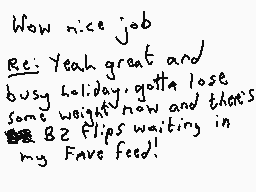 Wow nice job
Re: Yeah great and
busy holiday, gotta lose
some weight now and there's
82 flips waiting in
my Fave feed!